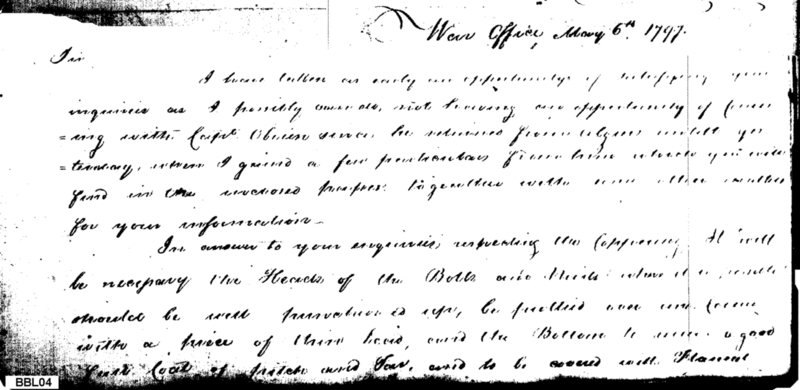 War Office, May 6th 1797.
Sir
I have taken as early an opportunity of satisfying your
inquiries as I possibly could, not having an opportunity of
=ing with Capt. Obrien since he returned from Algiers untill yes
=terday, when I gained a few particulars from him which you will
find in the inclosed papers together with some other matters
for your information_
In answer to your enquiries respecting the Coppering. It will
be necessary the Heads of the Bolts and
should be well up, be
with a piece of thin lead, and the Bottom to a good
coat of pitch and Tar, and to be covered with Flannel
BBL04